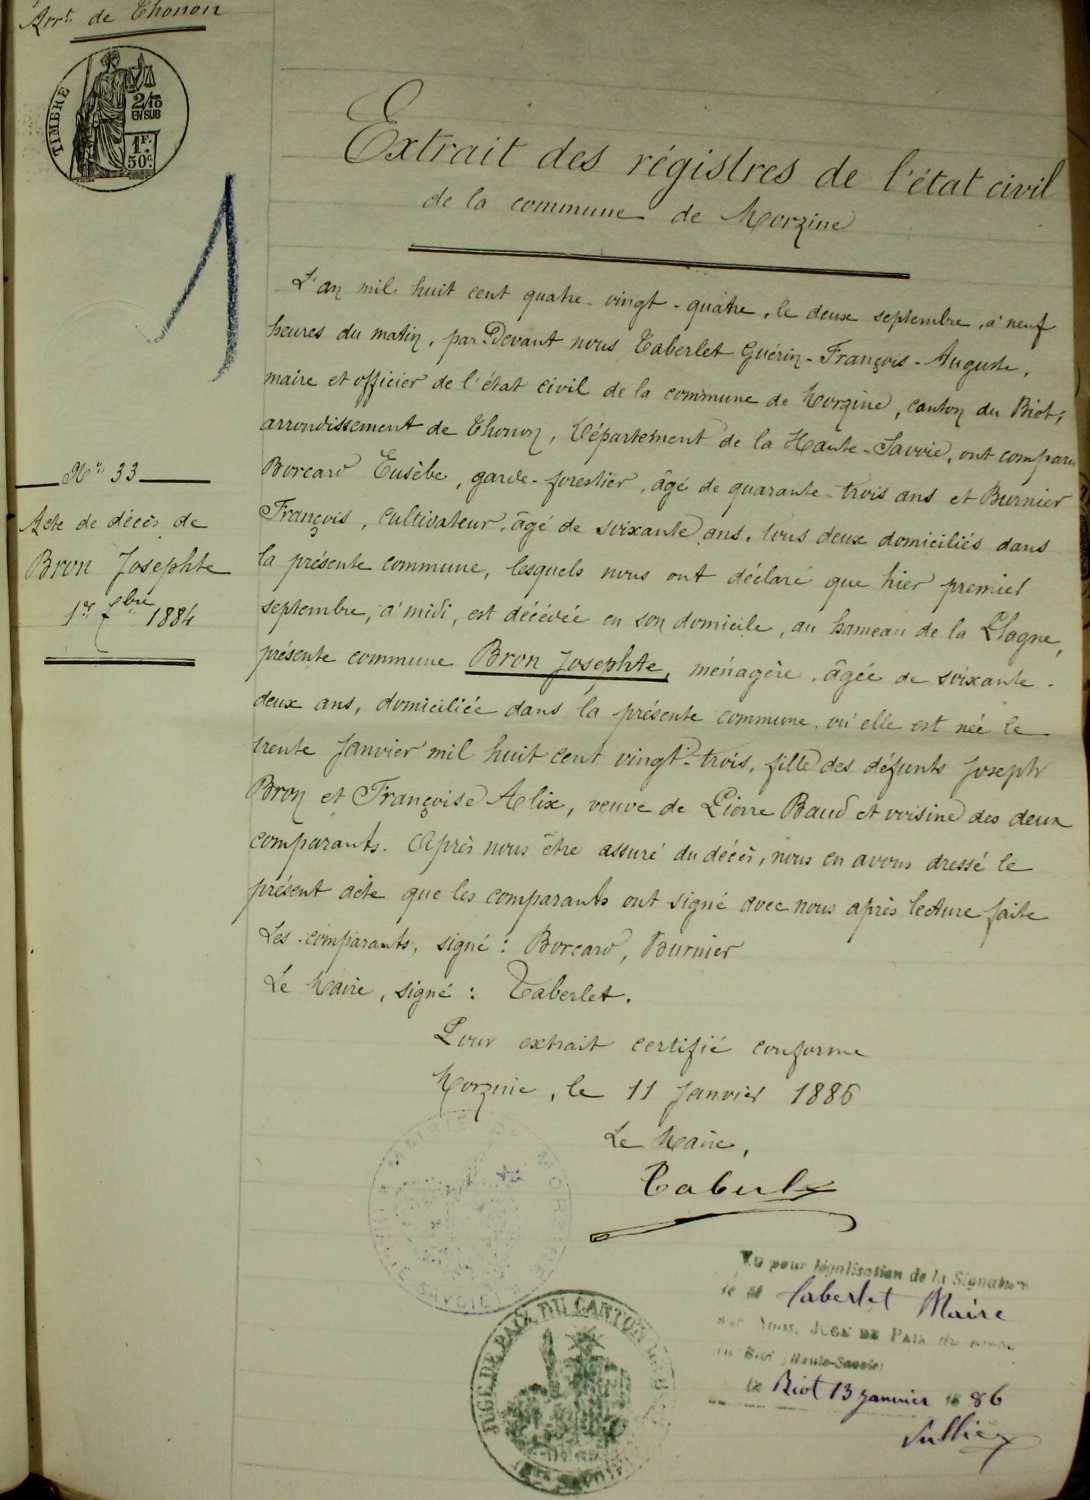 Arrt. de Thonon
TIMBRE
2/10
EN SUB
1F.
50c.
1
Extrait des régistres de l'état civil
de la commune de Morzine
L'an mil huit cent quatre-vingt-quatre, le deux septembre, à neuf
heures du matin, par Devant nous Taberlet Guérin-François-Auguste,
maire et officier de l'état civil de la commune de Morzine, canton du Biot,
arrondissement de Thonon, Département de la Haute-Savoie, ont comparu
Nro 33
Borcard Eusèbe, garde-forestier, âgé de quarante-trois ans et Burnier
Acte de décès de
François, cultivateur, âgé de soixante ans, tous deux domiciliés dans
Bron Josephte
la présente commune, lesquels nous ont déclaré que hier premier
1er 7bre 1884
septembre, à midi, est décédée en son domicile, au hameau de la Plagne,
présente commune Bron Josephte, ménagère, âgée de soixante-
deux ans, domiciliée dans la présente commune, où elle est née le
trente Janvier mil huit cent vingt-trois, fille des défunts Joseph
Bron et Françoise Alix, veuve de Pierre Baud et voisine des deux
comparants. Après nous être assuré du décès, nous en avons dressé le
présent acte que les comparants ont signé avec nous après lecture faite
Les comparants, signé : Borcard, Burnier
Le Maire, signé : Taberlet.
Pour extrait certifié conforme
Morzine, le 11 Janvier 1886
Le Maire,
Taberlet
Vu pour légalisation de la Signature
de M Taberlet Maire
par Nous, JUGE DE PAIX du canton
du Biot (Haute-Savoie)
le Biot 13 janvier 1886
JUGE DE PAIX DU CANTON
(Hte SAVOIE)